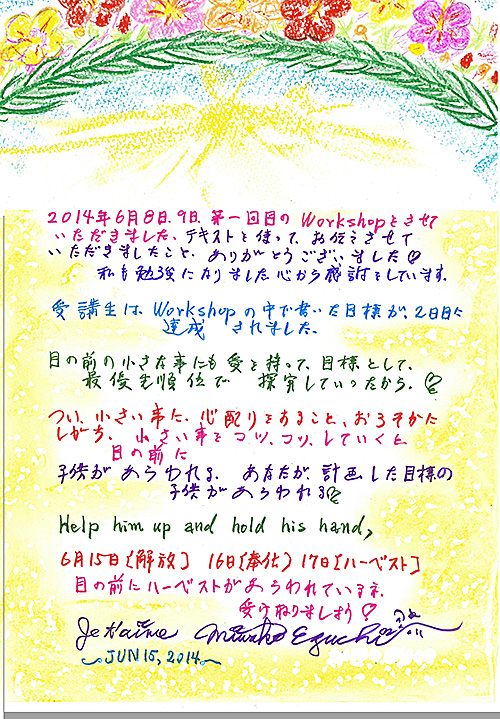 2014年6月8日.9日.第一回目のWorkshopをさせて
いただきました、テキストを使って、お伝えさせて
いただきましたこと、ありがとうございました♡
私も勉強になりました心から感謝をしています.
受講生は、Workshopの中で書いた目標が、2日目に
達成 されました.
目の前の小さな事にも愛を持って、目標として、
最優先順位で 探究していったから.♡
つい、小さい事に、心配りをすること、おろそかに
しがち、小さい事をコツ、コツ、していくと
目の前に
子供があらわれる. あなたが、計画した目標の
子供があらわれる♡
Help him up and hold his hand,
6月15日[解放] 16日[奉仕] 17日[ハーベスト]
目の前にハーベストがあらわれていますネ.
受け取りましょう♡
Je t'aime Miwako Eguchi
~JUN15,2014~